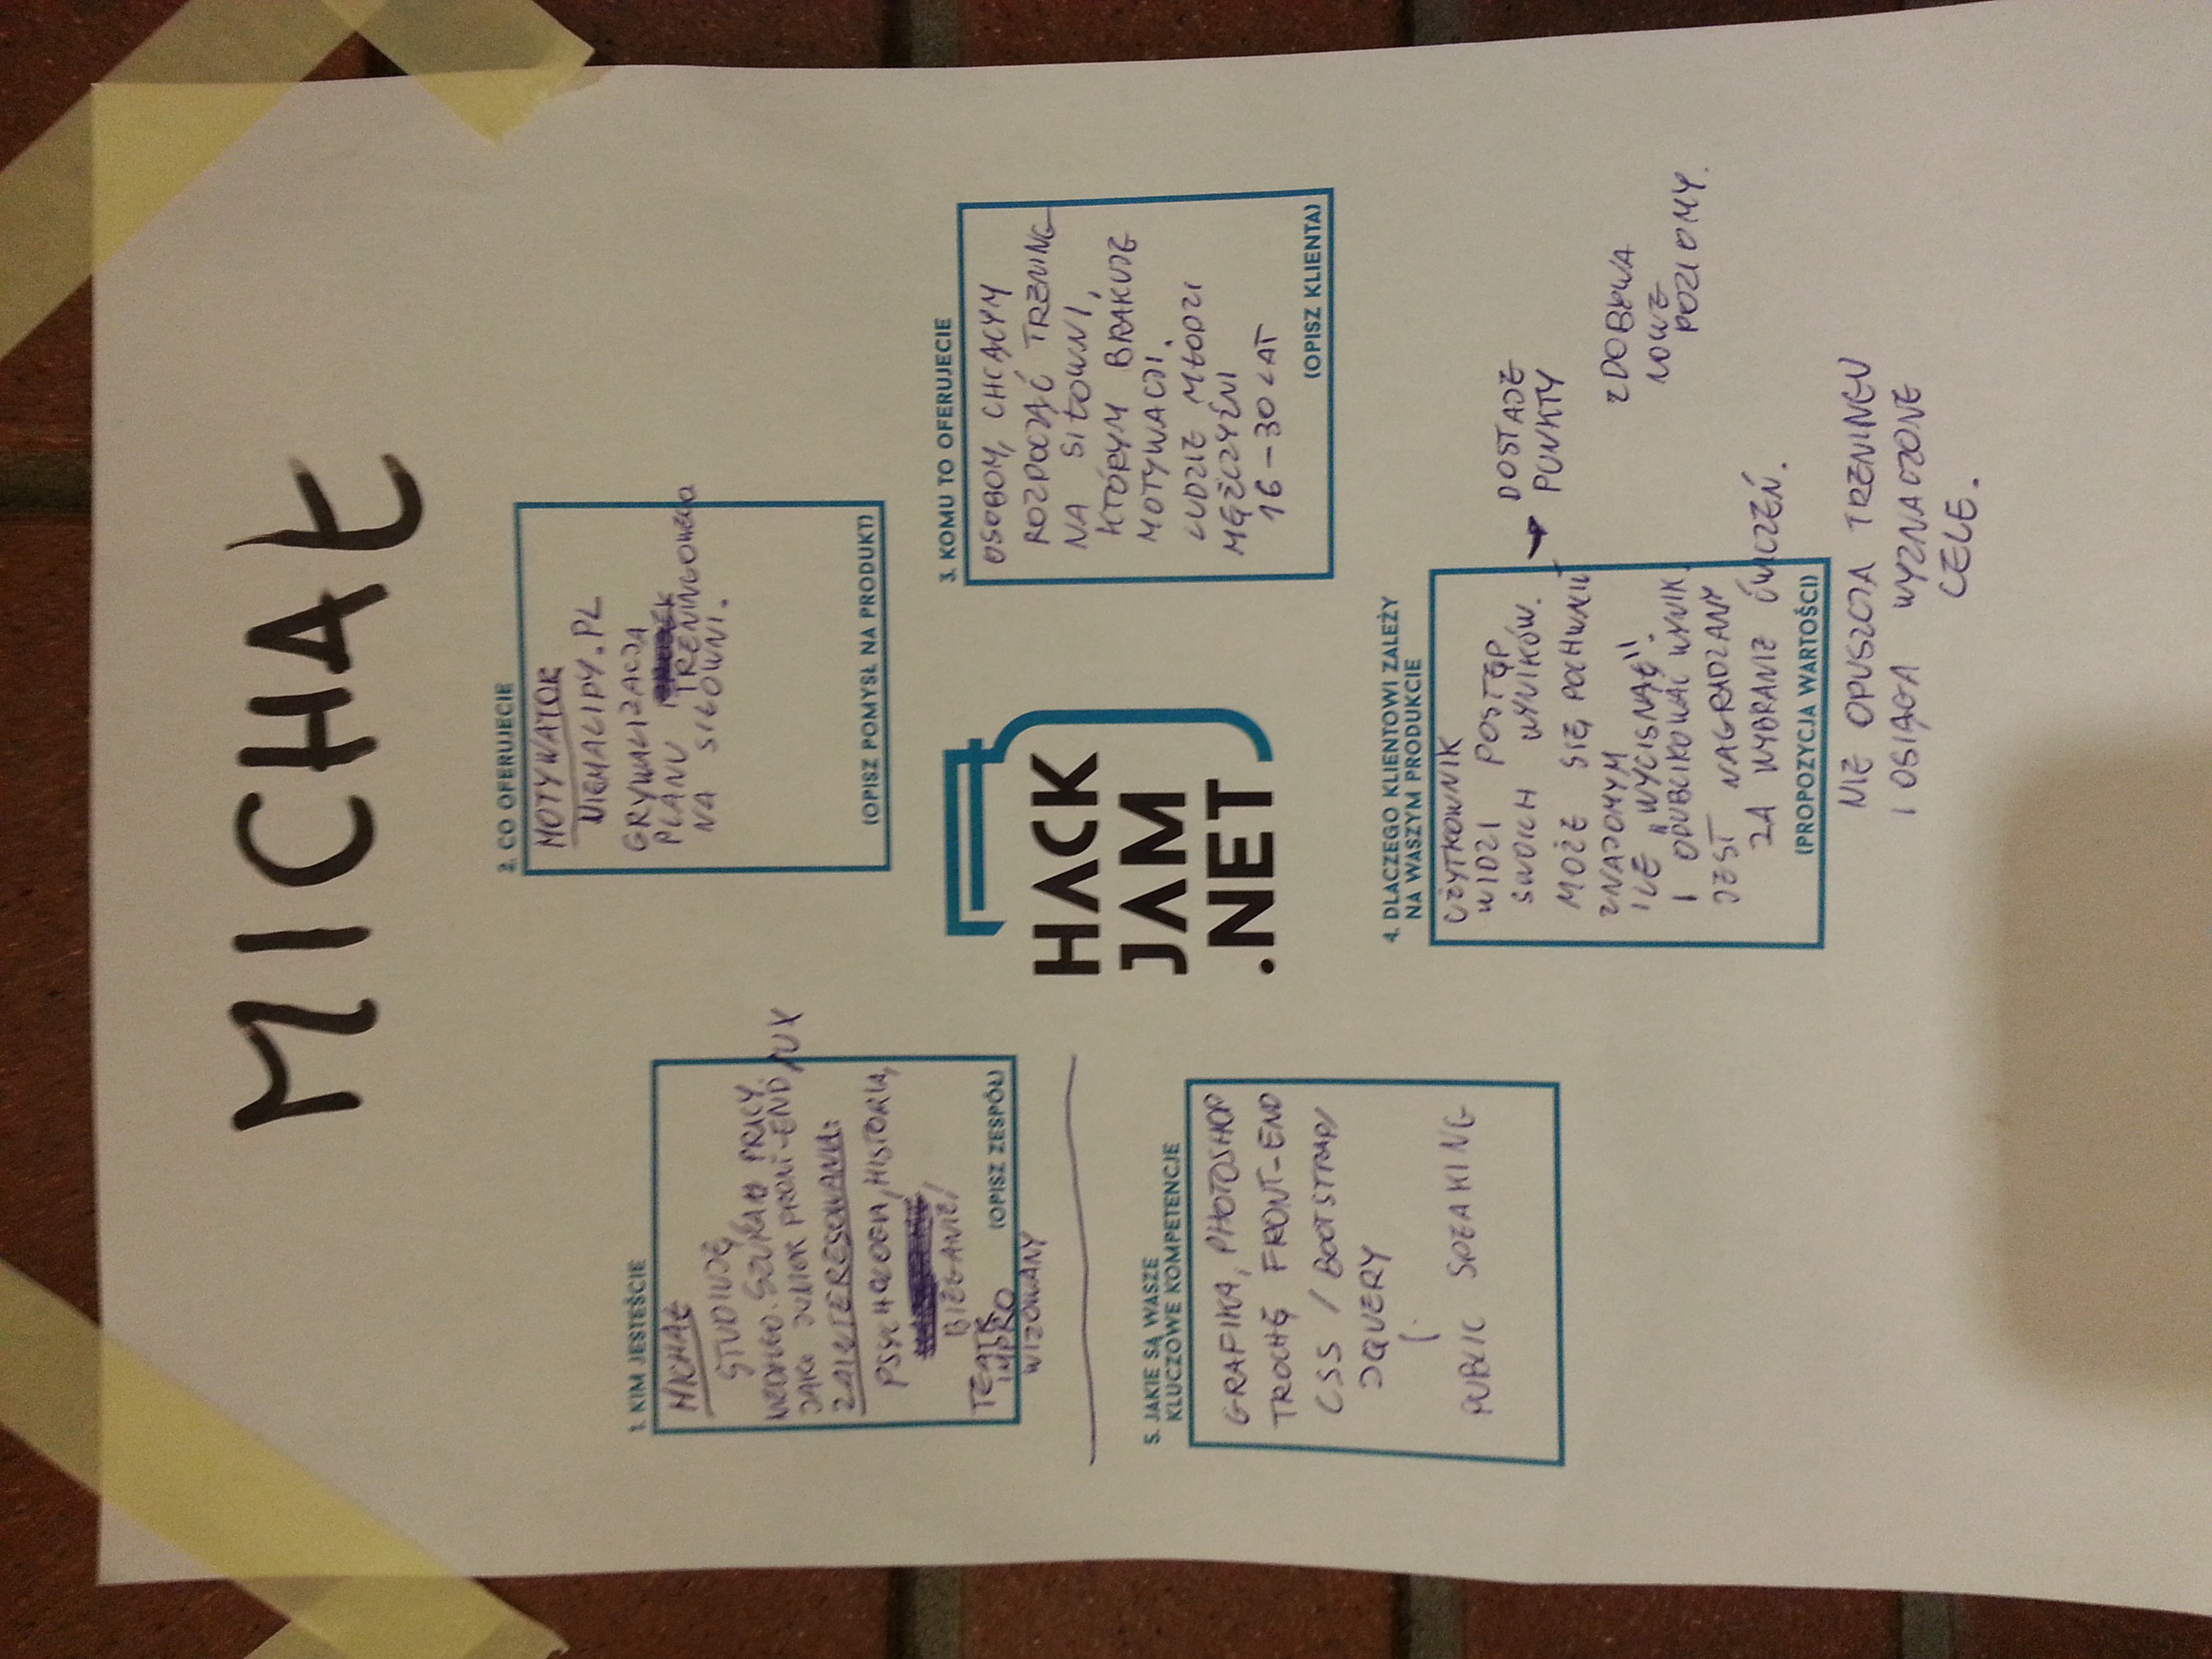 MICHAŁ
1. KIM JESTEŚCIE
MICHAŁ
STUDIUJĘ
SZUKAM PRACY
JAKO JUNIOR FRONT-END /UX
ZAINTERESOWANIA:
PSYCHOLOGIA, HISTORIA,
BIEGANIE,
TEATR
IMPRO
WIZOWANY
(OPISZ ZESPÓŁ)
2. CO OFERUJECIE
MOTYWATOR
GRYWALIZACJA
PLANU TRENINGOWEGO
NA SIŁOWNI.
(OPISZ POMYSŁ NA PRODUKT)
3. KOMU TO OFERUJECIE
OSOBOM, CHCĄCYM
ROZPOCZĄĆ TRENING
NA SIŁOWNI,
KTÓRYM BRAKUJE
MOTYWACJI.
LUDZIE MŁODZI
MĘŻCZYŹNI
16-30 LAT
(OPISZ KLIENTA)
HACK
JAM
.NET
4. DLACZEGO KLIENTOWI ZALEŻY
NA WASZYM PRODUKCIE
UŻYTKOWNIK
WIDZI POSTĘP
SWOICH WYNIKÓW.
MOŻE SIĘ POCHWALIĆ
ZNAJOMYM
ILE „WYCISNĄŁ"
I OPUBLIKOWAĆ WYNIK.
JEST NAGRADZANY
ZA WYBRANIE ĆWICZEŃ.
(PROPOZYCJA WARTOŚCI)
→ DOSTAJE
PUNKTY
ZDOBYWA
NOWE
POZIOMY.
NIE OPUSZCZA TRENINGU
I OSIĄGA WYZNACZONE
CELE.
5. JAKIE SĄ WASZE
KLUCZOWE KOMPETENCJE
GRAFIKA, PHOTOSHOP
TROCHĘ FRONT-END
CSS / BOOTSTRAP/
JQUERY
PUBLIC SPEAKING